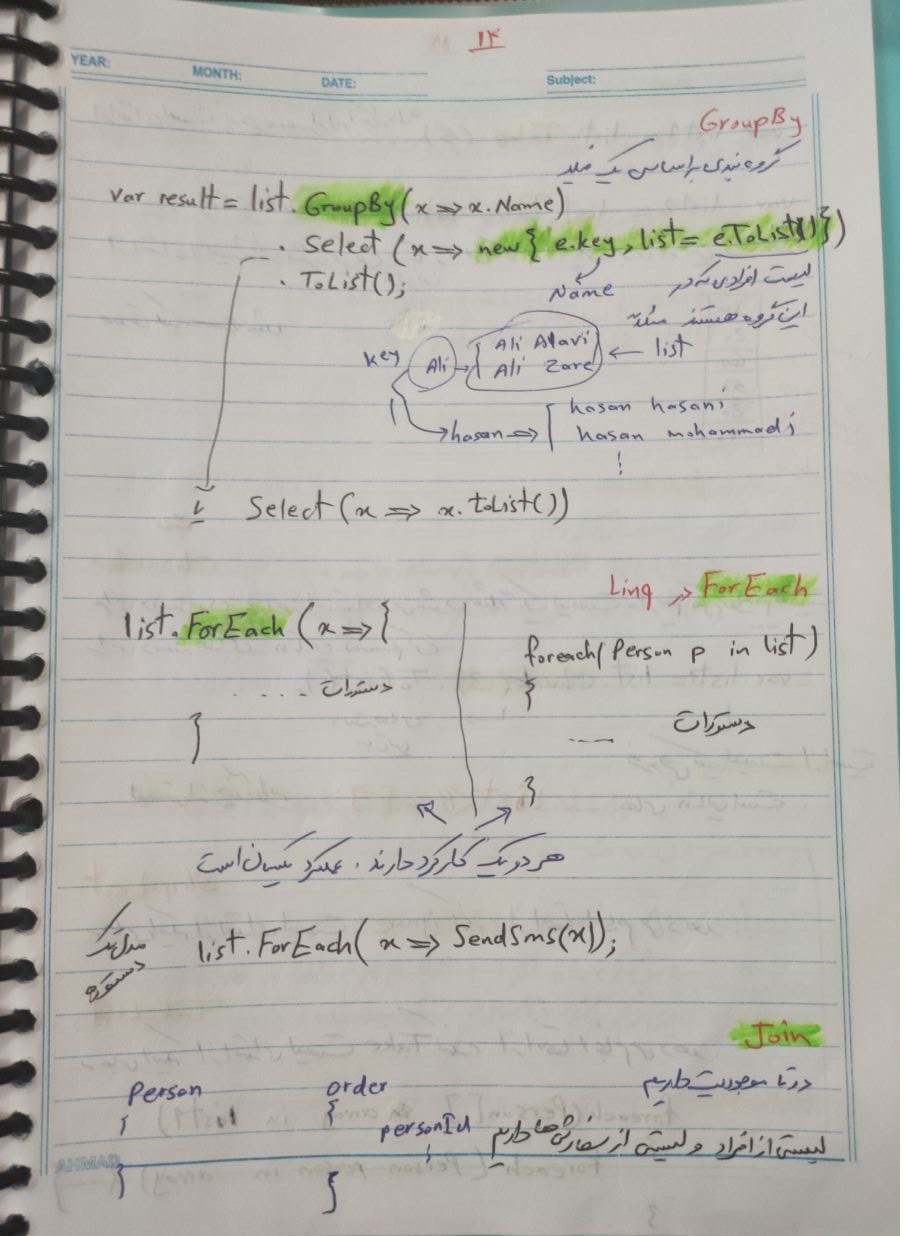 ۱۴
YEAR: MONTH: DATE: Subject:
GroupBy
گروه بندی بر اساس یک فیلد
var result = list.GroupBy(x => x.Name)
. Select (x => new{ e.key, list = e.ToList()})
. ToList();
Name
لیست افرادی که در
این گروه هستند مثلا
key Ali → Ali Alavi
Ali Zare ← list
hasan => hasan hasani
hasan mohammadi
Select (x => x.toList())
Linq → ForEach
list.ForEach (x => {
..... دستورات
}
foreach(Person p in list)
{
دستورات
....
}
هر دو یک کارکرد دارند. عملکرد یکسان است
مدل تک
دستوره
list.ForEach( x => SendSms(x));
Join
دو تا موجودیت داریم
Person
{
}
order
{
personId
}
لیستی از افراد و لیستی از سفارش ها داریم
AHMAD